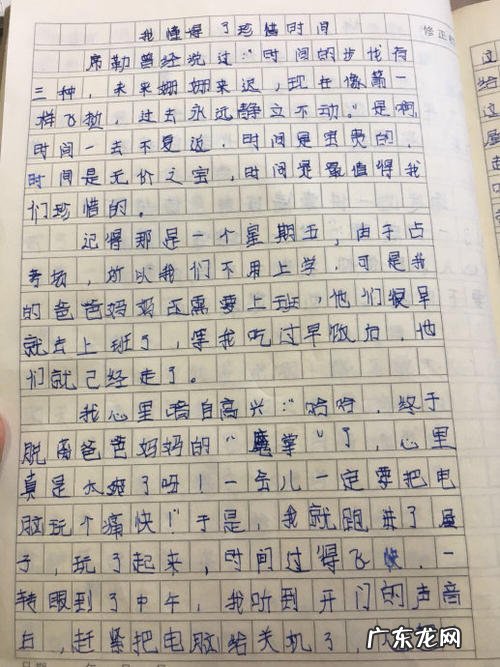 我懂得了珍惜时间
席勒曾经说过:"时间的步伐有
三种，未来姗姗来迟，现在像箭一
样飞逝，过去永远静立不动。"是啊，
时间一去不复返，时间是宝贵的，
时间是无价之宝，时间是最值得我
们珍惜的。
记得那是一个星期五，由于占
考场，所以我们不用上学，可是我
的爸爸妈妈还需要上班，他们很早
就去上班了，等我吃过早饭后，他
们就已经走了。
我心里暗自高兴:"哈哈，终于
脱离爸爸妈妈的"魔掌"了，心里
真是太爽了呀!一会儿一定要把电
脑玩个痛快!"于是，我就跑进了屋
子，玩了起来，时间过得飞快，一
转眼到了中午，我听到开门的声音
后，赶紧把电脑给关机了，
修正
过
给
这
屋
走
广东龙网